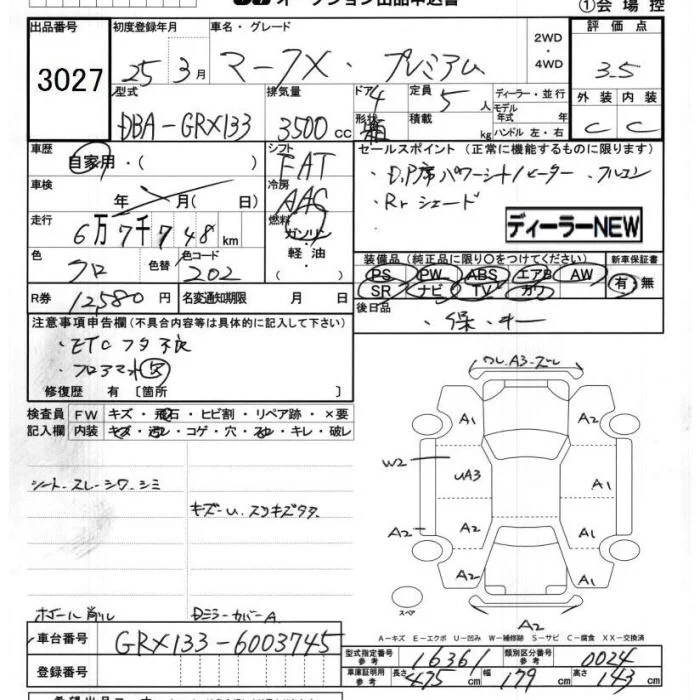 オークション出品申込書
①会場控
出品番号 初度登録年月 車名・グレード 評価点
3027
25年 3月 マークX・プレミアム 2WD ・ 4WD 3.5
型式 排気量 ドア 4 定員 5人 ディーラー・並行 外装 内装
DBA-GRX133 3500cc 形状 積載 kg モデル年式 年 ハンドル 左・右 C C
車歴 自家用・( ) シフト FAT セールスポイント (正常に機能するものに限ります)
車検 年 月( 日) 冷房 AAC ・D,P席パワーシート/ヒーター ・フルコン
・Rrシェード
走行 6万7千748km 燃料 ガソリン ・ 軽油 ・ ( ) ディーラーNEW
色 クロ 色替 色コード 202
装備品(純正品に限り○をつけてください) 新車保証書
PS PW ABS エアB AW 有・無
SR ナビ TV カワ
R券 12580円 名変通知期限 月 日 後日品 ・保・キー
注意事項申告欄(不具合内容等は具体的に記入して下さい)
・ETCフタ不良
・フロアマット欠
修復歴 有 [箇所 ]
検査員 FW キズ・飛石・ヒビ割・リペア跡・×要
記入欄 内装 キズ・汚レ・コゲ・穴・スレ・キレ・破レ
ワレ.A3.ズレ
A1 A2
W2 UA3 A1
A2 A2 A1
A2 A2
A2
スペア
シート.スレ.シワ.シミ
キズ.U.スリキズ多々
ホイール削レ DミラーカバーA
A-キズ E-エクボ U-凹み W-補修跡 S-サビ C-腐食 XX-交換済
車台番号 GRX133-6003745
登録番号
型式指定番号 参考 16361 類別区分番号 参考 0024
車庫証明用 参考 長さ 475 幅 179 高さ 143 cm